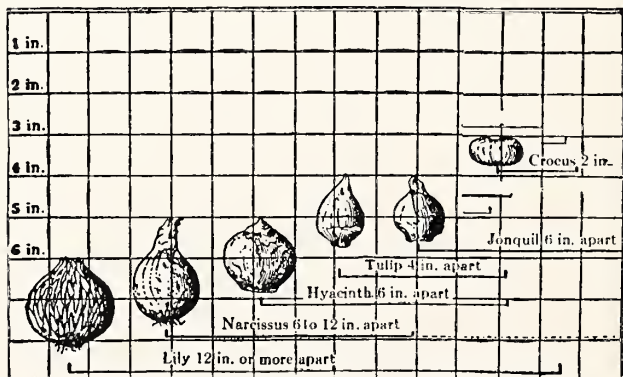 1 in.
2 in.
3 in.
4 in.
Crocus 2 in.
5 in.
Jonquil 6 in. apart
6 in.
Tulip 4 in. apart
Hyacinth 6 in. apart
Narcissus 6 to 12 in. apart
Lily 12 in. or more apart